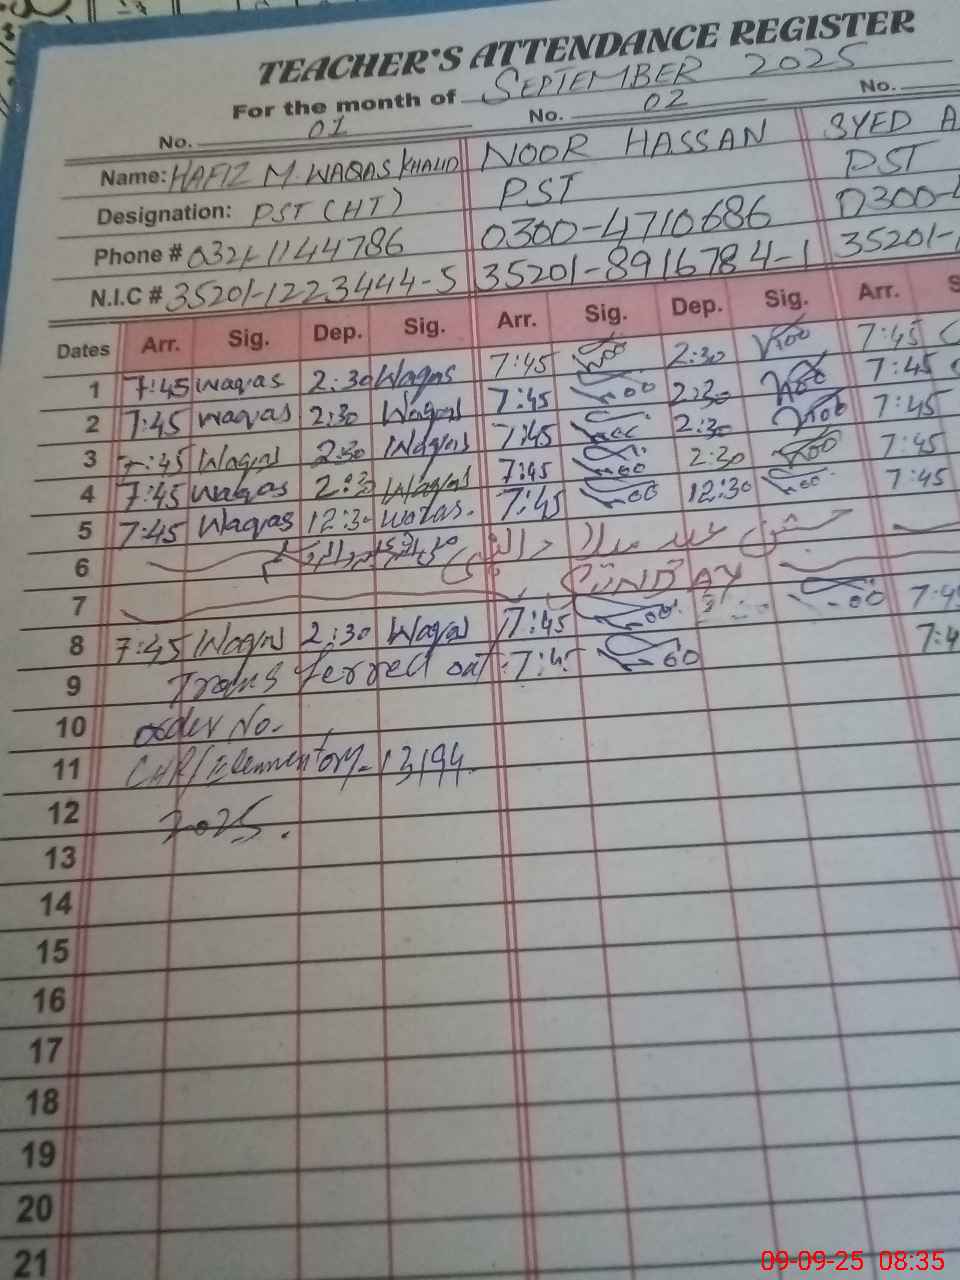 TEACHER'S ATTENDANCE REGISTER
For the month of SEPTEMBER 2025
No. 01 No. 02 No.
Name: HAFIZ M. WAQAS KHALID NOOR HASSAN SYED A
Designation: PST (HT) PST PST
Phone # 0321-1144786 0300-4710686 0300-
N.I.C # 35201-1223444-5 35201-8916784-1 35201-
Dates Arr. Sig. Dep. Sig. Arr. Sig. Dep. Sig. Arr. S
1 7:45 Waqas 2:30 Waqas 7:45 2:30 7:45
2 7:45 Waqas 2:30 Waqas 7:45 2:30 7:45
3 7:45 Waqas 2:30 Waqas 7:45 2:30 7:45
4 7:45 Waqas 2:30 Waqas 7:45 2:30 7:45
5 7:45 Waqas 12:30 7:45 12:30 7:45
6 جشن عید میلاد النبی
7 SUNDAY
8 7:45 Waqas 2:30 Waqas 7:45 7:45
9 Transferred out 7:45 7:4
10 order No.
11 Elementary-13194
12 2025.
13
14
15
16
17
18
19
20
21
09-09-25 08:35